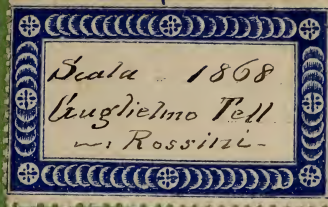 Scala - 1868
Guglielmo Tell
Rossini -